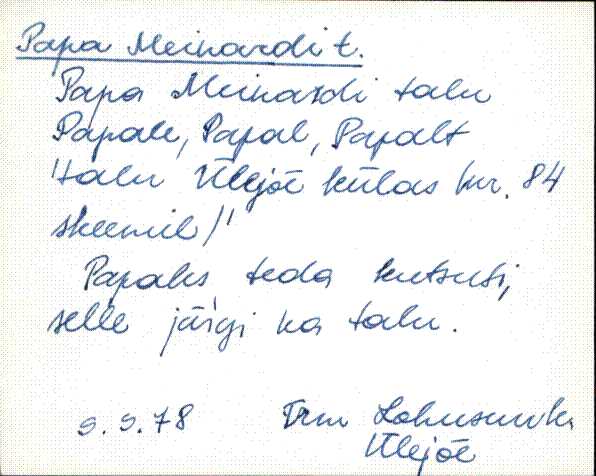 Papa Meinardi t.
Papa Meinardi talu
Papale, Papal, Papalt
'talu Ülejõe külas kr. 84
skeemil/'
Papaks teda kutsuti,
selle järgi ka talu.
5.5.78
Ülejõe